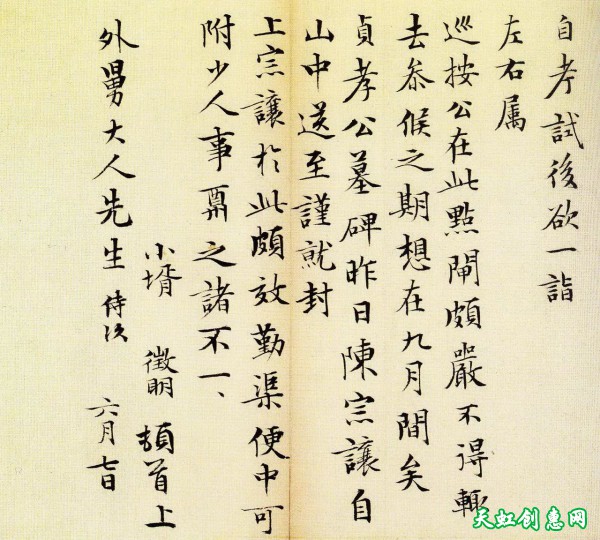 自考試後欲一詣
左右属
巡按公在此點閘頗嚴不得輙
去叅候之期想在九月間矣
貞孝公墓碑昨日陳宗讓自
山中送至謹就封
上宗讓於此頗效勤渠便中可
附少人事票之諸不一、
小壻 徵明 頓首上
外舅大人先生 侍次 六月七日
天虹创惠网